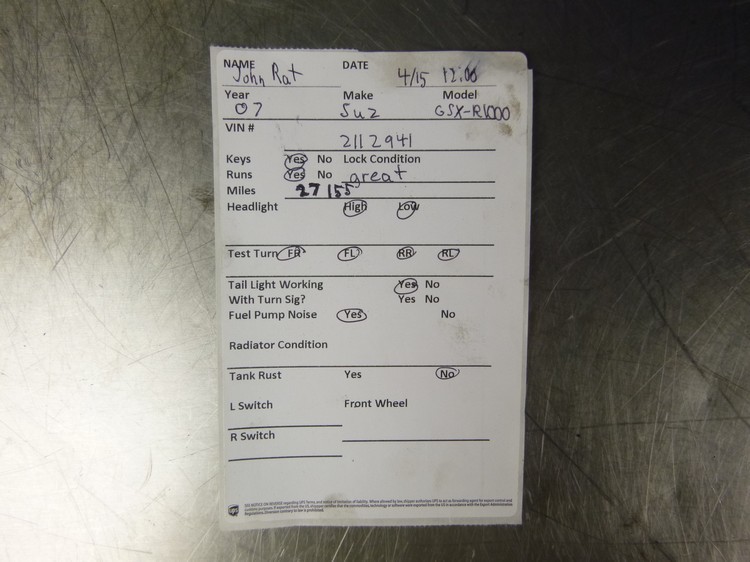 NAME DATE
John Rat 4/15 12:00
Year Make Model
07 Suz GSX-R1000
VIN #
2112941
Keys Yes No Lock Condition
Runs Yes No great
Miles 27155
Headlight High Low
Test Turn FR FL RR RL
Tail Light Working Yes No
With Turn Sig? Yes No
Fuel Pump Noise Yes No
Radiator Condition
Tank Rust Yes No
L Switch Front Wheel
R Switch
ups